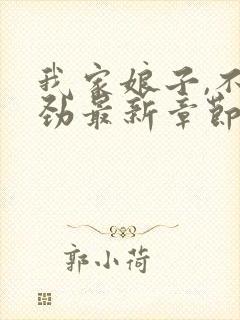 我家娘子,不
劲最新章节
郭小荷